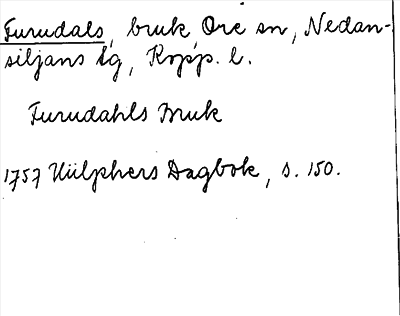 Furudals, bruk, Ore sn, Nedan-
siljans tg, Kopp. l.
Furudahls Bruk
1757 Hülphers Dagbok, s. 150.